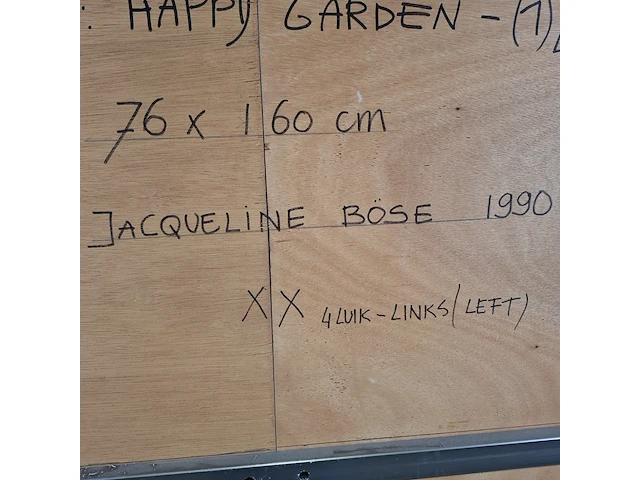 : HAPPY GARDEN - (1)
76 x 160 cm
JACQUELINE BÖSE 1990
XX 4LUIK-LINKS (LEFT)